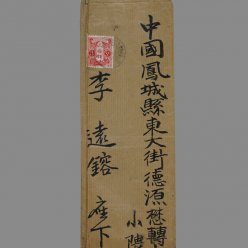 中國鳳城縣東大街德源懋轉
小陽
李遠鎔座下